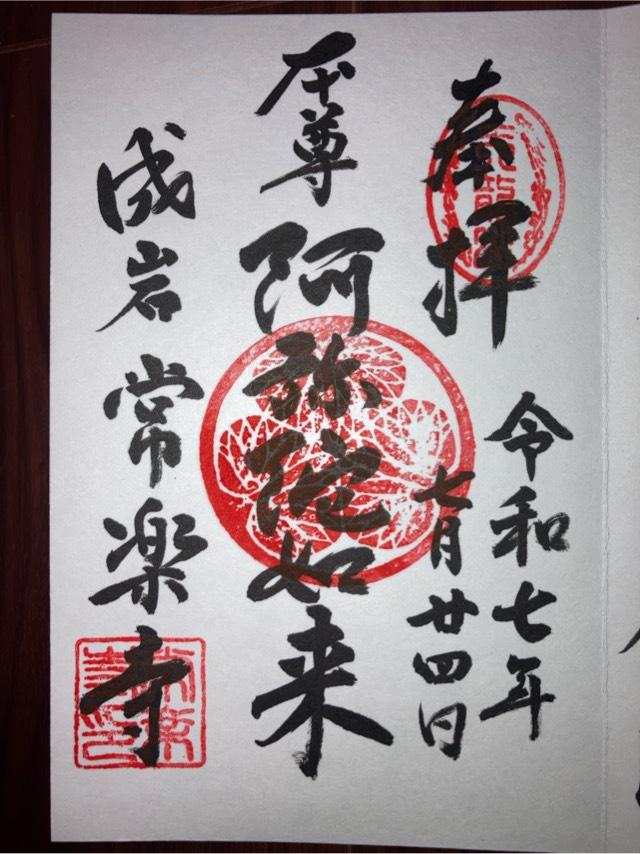 奉拝
令和七年
七月廿四日
本尊 阿弥陀如来
成岩 常楽寺